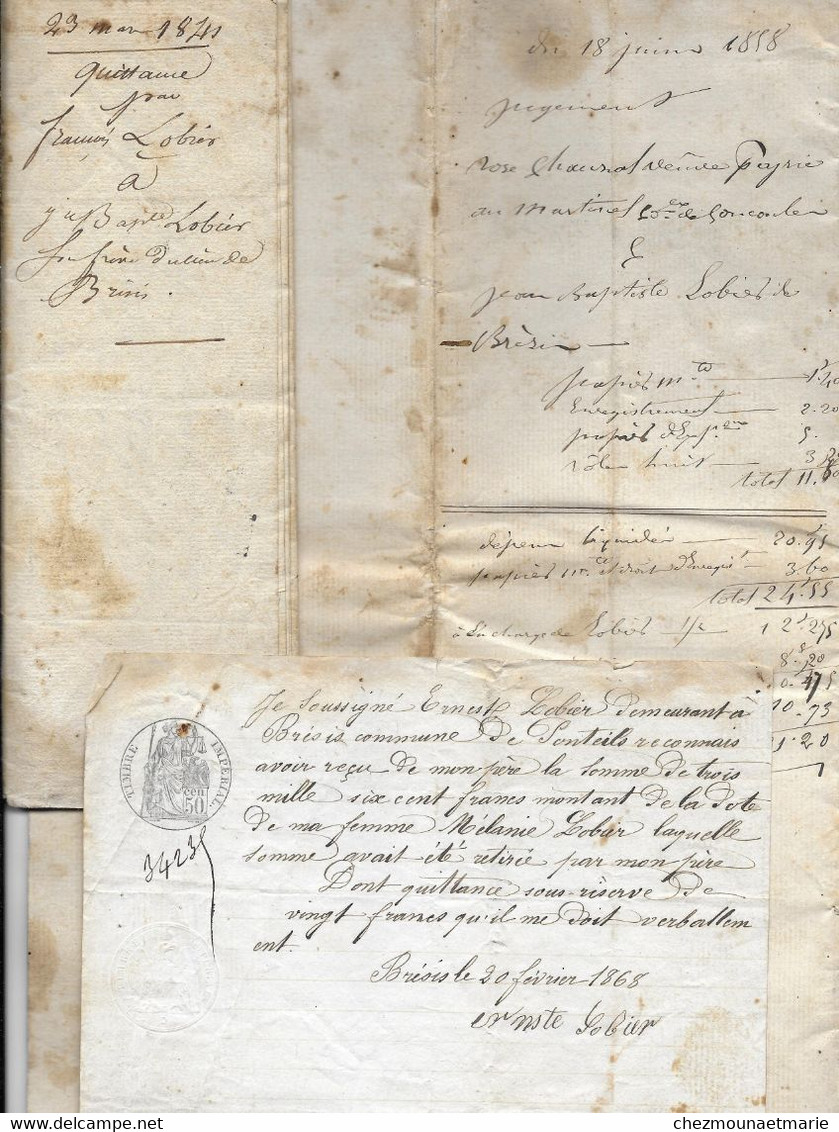 23 mars 1841
quittance
par
françois Lobier
a
Jn Bapte Lobier
son frère du lieu de
Brisis.
du 18 juin 1858
jugement
rose veuve Peyric
au Martinel
&
jean Baptiste Lobier de
Brèsis
papiers 1.40
Enregistrement 2.20
papiers 5.
rôles huit
total 11.60
dépens liquidés 20.95
papiers et droit d'Enregist 3.60
total 24.55
à la charge de Lobier 1/2 12.275
8.20
0.475
10.73
1.20
TIMBRE IMPÉRIAL
50 cen
34235
Je soussigné Ernest Lobier demeurant a
Brésis commune de Ponteils reconnais
avoir reçu de mon père la somme de trois
mille six cent francs montant de la dote
de ma femme Mélanie Lobier laquelle
somme avait été retirée par mon père
Dont quittance sous-réserve de
vingt francs qu'il me doit verballem
ent.
Brésis le 20 février 1868
ernste Lobier
chezmounaetmarie